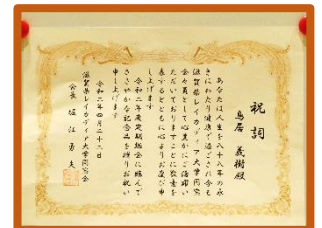 祝詞
鳥居 義衛殿
あなたは人生を八十八年の永
きにわたり健康で過ごされ今も
滋賀県レイカディア大学同窓
会々員として心豊かにご活躍い
ただいておりますことに敬意を
表するとともに心よりお慶び申
し上げます
令和二年度定期総会に臨んで
ささやかな記念品を贈りお祝い
申し上げます
令和二年四月二十二日
滋賀県レイカディア大学同窓会
会長 堀江勇夫